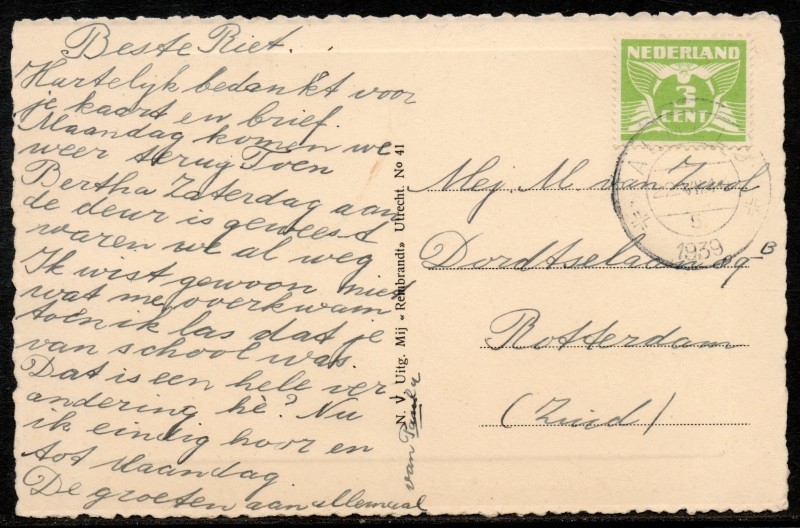 Beste Riet.
Hartelijk bedankt voor
je kaart en brief.
Maandag komen we
weer terug Toen
Bertha Zaterdag aan
de deur is geweest
waren we al weg
Ik wist gewoon niet
wat me overkwam
toen ik las dat je
van school was.
Dat is een hele ver
andering hè? Nu
ik eindig hoor en
tot Maandag
De groeten aan allemaal
van
N. V. Uitg. Mij « Rembrandt» Utrecht. No 41
NEDERLAND
3
CENT
1939
Mej. M. van Zwol
Dordtselaan 9q B
Rotterdam
(Zuid)